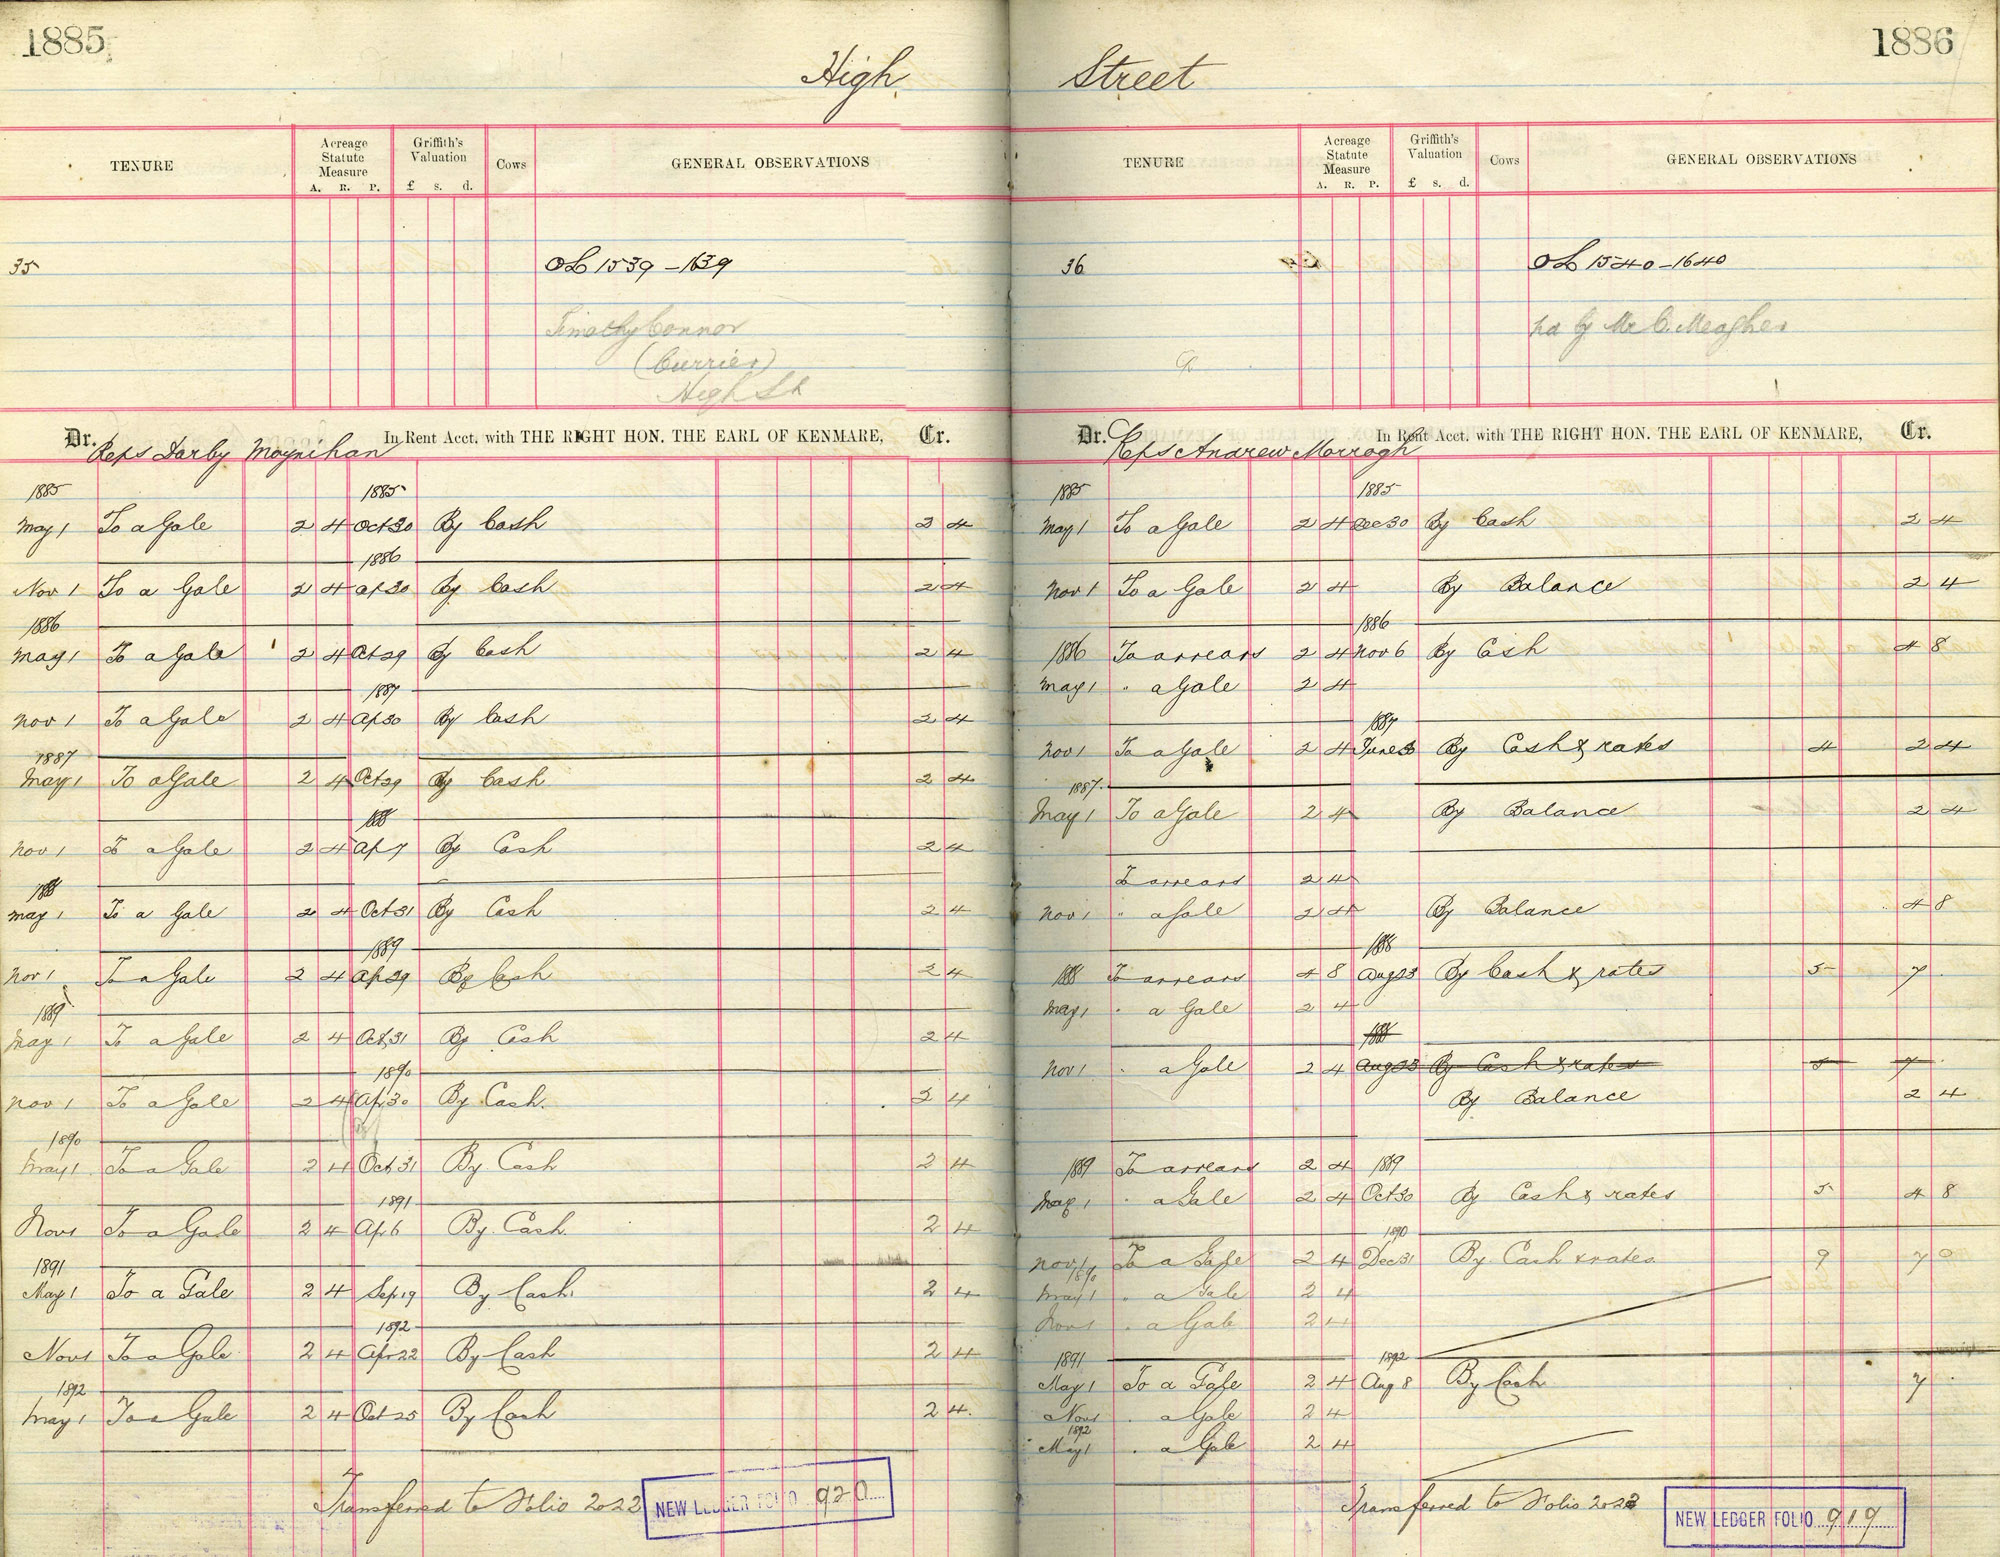 1885
High
TENURE
Acreage Statute Measure
A. R. P.
Griffith's Valuation
£ s. d.
Cows
GENERAL OBSERVATIONS
35
OL 1539 - 1639
Timothy Connor
(Currier)
High St
Dr. Reps Darby Moynihan In Rent Acct. with THE RIGHT HON. THE EARL OF KENMARE, Cr.
1885 1885
May 1 To a Gale 2 4 Oct 30 By Cash 2 4
1886
Nov 1 To a Gale 2 4 Ap 30 By Cash 2 4
1886
May 1 To a Gale 2 4 Oct 29 By Cash 2 4
1887
Nov 1 To a Gale 2 4 Ap 30 By Cash 2 4
1887
May 1 To a Gale 2 4 Oct 29 By Cash 2 4
1888
Nov 1 To a Gale 2 4 Ap 7 By Cash 2 4
1888
May 1 To a Gale 2 4 Oct 31 By Cash 2 4
1889
Nov 1 To a Gale 2 4 Ap 29 By Cash 2 4
1889
May 1 To a Gale 2 4 Oct 31 By Cash 2 4
1890
Nov 1 To a Gale 2 4 Ap 30 By Cash. 2 4
1890
May 1 To a Gale 2 4 Oct 31 By Cash 2 4
1891
Nov 1 To a Gale 2 4 Ap 6 By Cash. 2 4
1891
May 1 To a Gale 2 4 Sep 19 By Cash. 2 4
1892
Nov 1 To a Gale 2 4 Apr 22 By Cash 2 4
1892
May 1 To a Gale 2 4 Oct 25 By Cash 2 4.
Transferred to Folio 2022
NEW LEDGER FOLIO 920
1886
Street
TENURE
Acreage Statute Measure
A. R. P.
Griffith's Valuation
£ s. d.
Cows
GENERAL OBSERVATIONS
36
OL 1540 - 1640
Mr C. Meagher
Dr. Reps Andrew Morrogh In Rent Acct. with THE RIGHT HON. THE EARL OF KENMARE, Cr.
1885 1885
May 1 To a Gale 2 4 Dec 30 By Cash 2 4
Nov 1 To a Gale 2 4 By Balance 2 4
1886
1886 To arrears 2 4 Nov 6 By Cash 4 8
May 1 " a Gale 2 4
1887
Nov 1 To a Gale 2 4 June 3 By Cash & rates 4 2 4
1887.
May 1 To a Gale 2 4 By Balance 2 4
To arrears 2 4
Nov 1 " a Gale 2 4 By Balance 4 8
1888
1888 To arrears 4 8 Aug 23 By Cash & rates 5 7
May 1 " a Gale 2 4
1888
Nov 1 " a Gale 2 4 Aug 23 By Cash & rates 5 7
By Balance 2 4
1889 To arrears 2 4 1889
May 1 " a Gale 2 4 Oct 30 By Cash & rates 5 4 8
1890
Nov 1 To a Gale 2 4 Dec 31 By Cash & rates. 9 7 0
1890
May 1 " a Gale 2 4
Nov 1 " a Gale 2 4
1891 1892
May 1 To a Gale 2 4 Aug 8 By Cash 7
Nov 1 " a Gale 2 4
1892
May 1 " a Gale 2 4
Transferred to Folio 2023
NEW LEDGER FOLIO 919